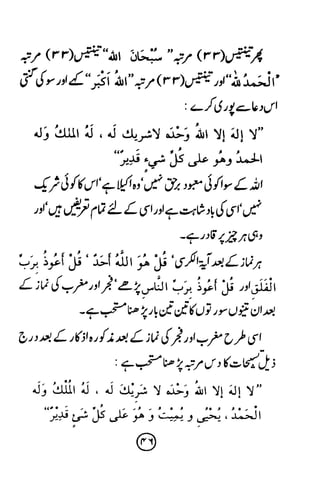 پھر تینتیس (٣٣) مرتبہ ”سُبْحَانَ اللہ“ تینتیس (٣٣) مرتبہ
”الْحَمدُ لِلّٰہ“ اور تینتیس (٣٣) مرتبہ ”اللہُ اَکْبَر“ کہے اور سو کی گنتی
اس دعا سے پوری کرے :
”لا إلهَ إلا اللهُ وَحْدَه لاشریك لَه ، لَهُ الملكُ وَله
الحمدُ وهُو علی کُلِّ شيءٍ قَدِیرٌ“
اللہ کے سوا کوئی معبود برحق نہیں‘ وہ اکیلا ہے‘ اس کا کوئی شریک
نہیں‘ اسی کی بادشاہت ہے اور اسی کے لئے تمام تعریفیں ہیں‘ اور
وہی ہر چیز پر قادر ہے۔
ہر نماز کے بعد آیۃ الکرسی‘ قُلْ هُوَ اللّٰهُ أَحَدٌ ‘ قُلْ أَعُوذُ بِرَبِّ
الْفَلَقِ اور قُلْ أَعُوذُ بِرَبِّ النَّاسِ پڑھے‘ فجر اور مغرب کی نماز کے
بعد ان تینوں سورتوں کا تین تین بار پڑھنا مستحب ہے۔
اسی طرح مغرب اور فجر کی نماز کے بعد مذکورہ اذکار کے بعد درج
ذیل تسبیحات کا دس مرتبہ پڑھنا مستحب ہے :
”لا إلهَ إلا اللهُ وَحْدَه لا شَرِیْكَ لَه ، لَهُ الْمُلْكُ وَلَه
الْحَمْدُ ، یُحْیِیْ و یُمِیْتُ وَ هُوَ عَلی کُلِّ شَئٍ قَدِیْرٌ“
٤٦